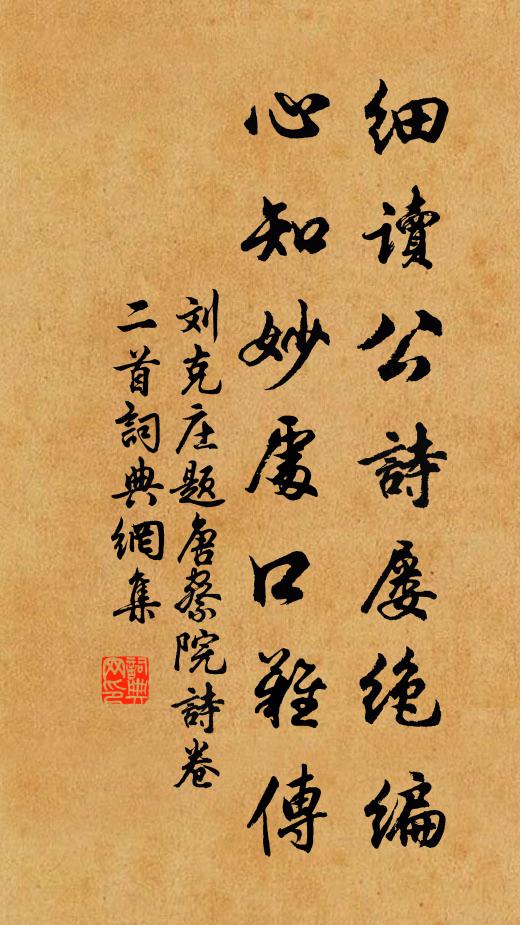 细读公詩屡绝编
心知妙處口難傳
刘克庄题唐察院詩卷
二首詞典網集
詞典
网印